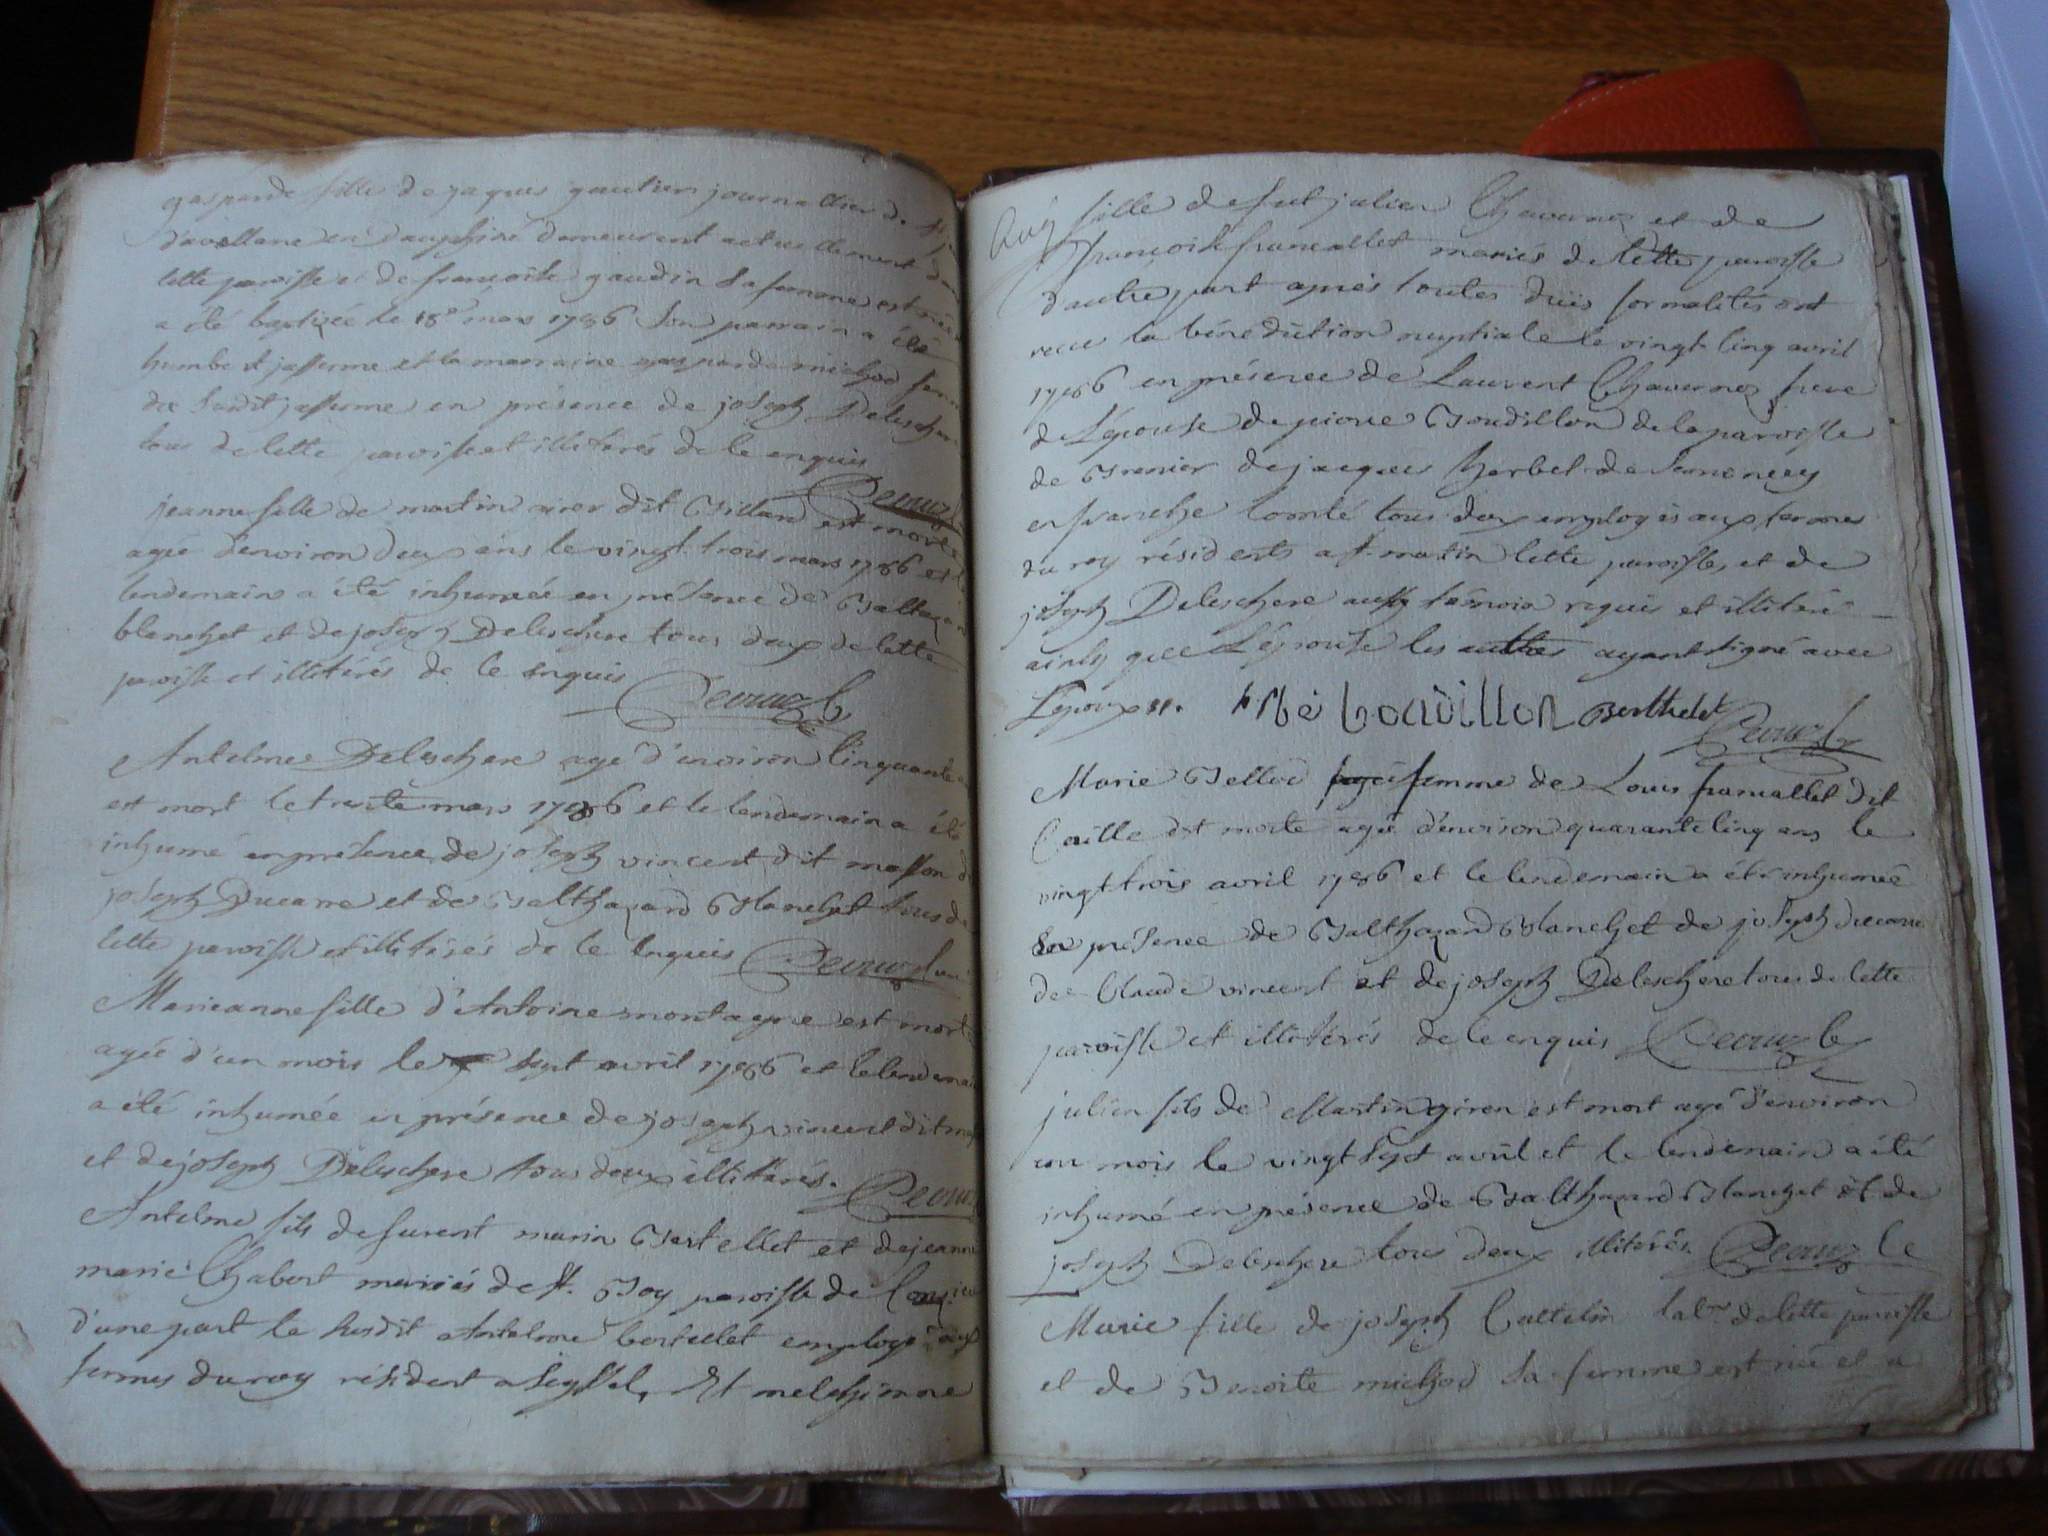 gasparde fille de jaques gautier journallier de
d'avellane en dauphiné demeurent actuellement
cette paroisse et de françoise gaudin sa femme est née
a été baptizée le 18e mars 1786 son parrain a été
humbert jasserme et la marraine gasparde michod
du susdit jasserme en présence de joseph Deleschere
tous de cette paroisse et illitérés de ce enquis
Decruz
jeanne fille de martin giron dit Billard est morte
agée d'environ deux ans le vingt trois mars 1786 et
lendemain a été inhumée en présence de Baltazard
blanchet et de joseph Deleschere tous deux de cette
paroisse et illitérés de ce enquis
Decruz C
Antelme Deleschere agé d'environ cinquante
est mort le trente mars 1786 et le lendemain a été
inhumé en présence de joseph vincent dit masson
joseph Ducarre et de Balthazard Blanchet tous de
cette paroisse et illitérés de ce enquis Decruz
Marieanne fille d'Antoine montagne est morte
agée d'un mois le sept avril 1786 et le lendemain
a été inhumée en présence de joseph vincent dit
et de joseph Deleschere tous deux illitérés. Decruz
Antelme fils de furent marin Bertellet et de jeanne
marie Chabert mariés de st. Boy paroisse de
d'une part le susdit Antelme bertellet employé aux
fermes du roy résident a seyssel, Et melchionne
fille de fut julien Chavernoz et de
françoise francallet mariés de cette paroisse
d'autre part après toutes dües formalités ont
recue la bénédiction nuptiale le vingt cinq avril
1786 en présence de Laurent Chavernoz frere
de L'épouse de pierre Boudillon de la paroisse
de Brenier de jacques herbet de
en franche comté tous deux employés aux fermes
du roy résidents a st. martin cette paroisse, et de
joseph Deleschere aussy témoin requis et illitéré
ainsy que L'épouse les autres ayant signé avec
L'époux. boudillon Berthelet
Decruz C
Marie Belloz femme de Louis francallet dit
Caille est morte agée d'environ quarante cinq ans le
vingt trois avril 1786 et le lendemain a été inhumée
En présence de Balthazard Blanchet de joseph ducarre
de Claude vincent et de joseph Deleschere tous de cette
paroisse et illitérés de ce enquis Decruz C
julien fils de Martin giron est mort agé d'environ
un mois le vingt sept avril et le lendemain a été
inhumé en présence de Balthazard Blanchet et de
joseph Deleschere tous deux illitérés Decruz C
Marie fille de joseph Cattelin labr de cette paroisse
et de Benoite michod sa femme est née et a